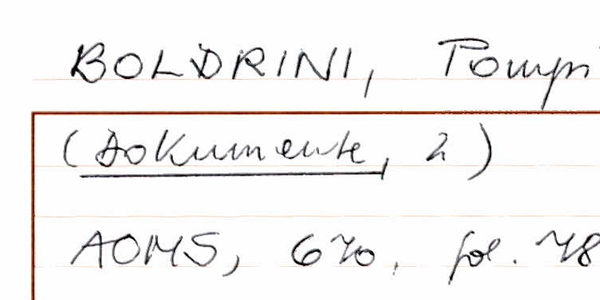 BOLDRINI, Pompi
(Dokumente, 2)
AOMS, 670, fol. 48